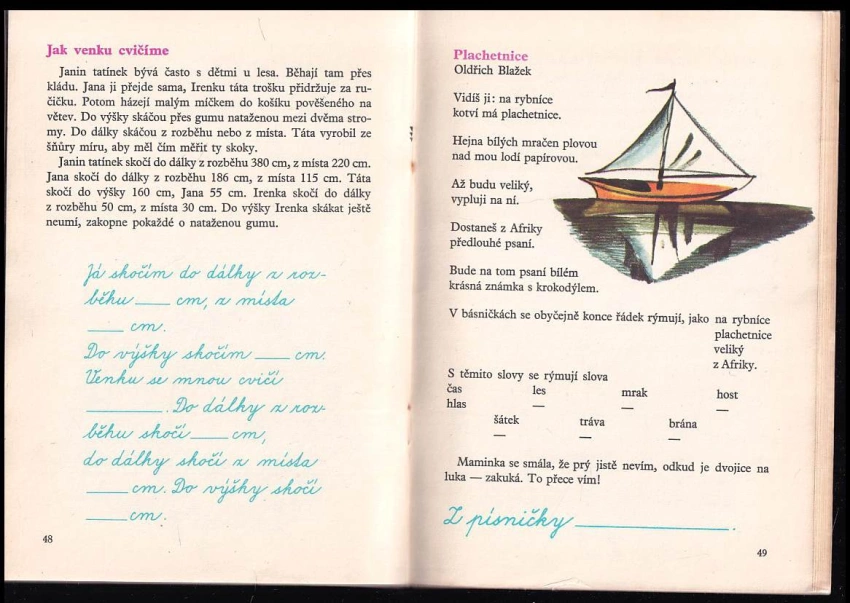 Jak venku cvičíme
Janin tatínek bývá často s dětmi u lesa. Běhají tam přes
kládu. Jana ji přejde sama, Irenku táta trošku přidržuje za ru-
čičku. Potom házejí malým míčkem do košíku pověšeného na
větev. Do výšky skáčou přes gumu nataženou mezi dvěma stro-
my. Do dálky skáčou z rozběhu nebo z místa. Táta vyrobil ze
šňůry míru, aby měl čím měřit ty skoky.
Janin tatínek skočí do dálky z rozběhu 380 cm, z místa 220 cm.
Jana skočí do dálky z rozběhu 186 cm, z místa 115 cm. Táta
skočí do výšky 160 cm, Jana 55 cm. Irenka skočí do dálky
z rozběhu 50 cm, z místa 30 cm. Do výšky Irenka skákat ještě
neumí, zakopne pokaždé o nataženou gumu.
Já skočím do dálky z roz-
běhu ___ cm, z místa
___ cm.
Do výšky skočím ___ cm.
Venku se mnou cvičí
___. Do dálky z roz-
běhu skočí ___ cm,
do dálky skočí z místa
___ cm. Do výšky skočí
___ cm.
48
Plachetnice
Oldřich Blažek
Vidíš ji: na rybníce
kotví má plachetnice.
Hejna bílých mračen plovou
nad mou lodí papírovou.
Až budu veliký,
vypluji na ní.
Dostaneš z Afriky
předlouhé psaní.
Bude na tom psaní bílém
krásná známka s krokodýlem.
V básničkách se obyčejně konce řádek rýmují, jako na rybníce
plachetnice
veliký
z Afriky.
S těmito slovy se rýmují slova
čas les mrak host
hlas — — —
šátek tráva brána
— — —
Maminka se smála, že prý jistě nevím, odkud je dvojice na
luka — zakuká. To přece vím!
Z písničky ___.
49